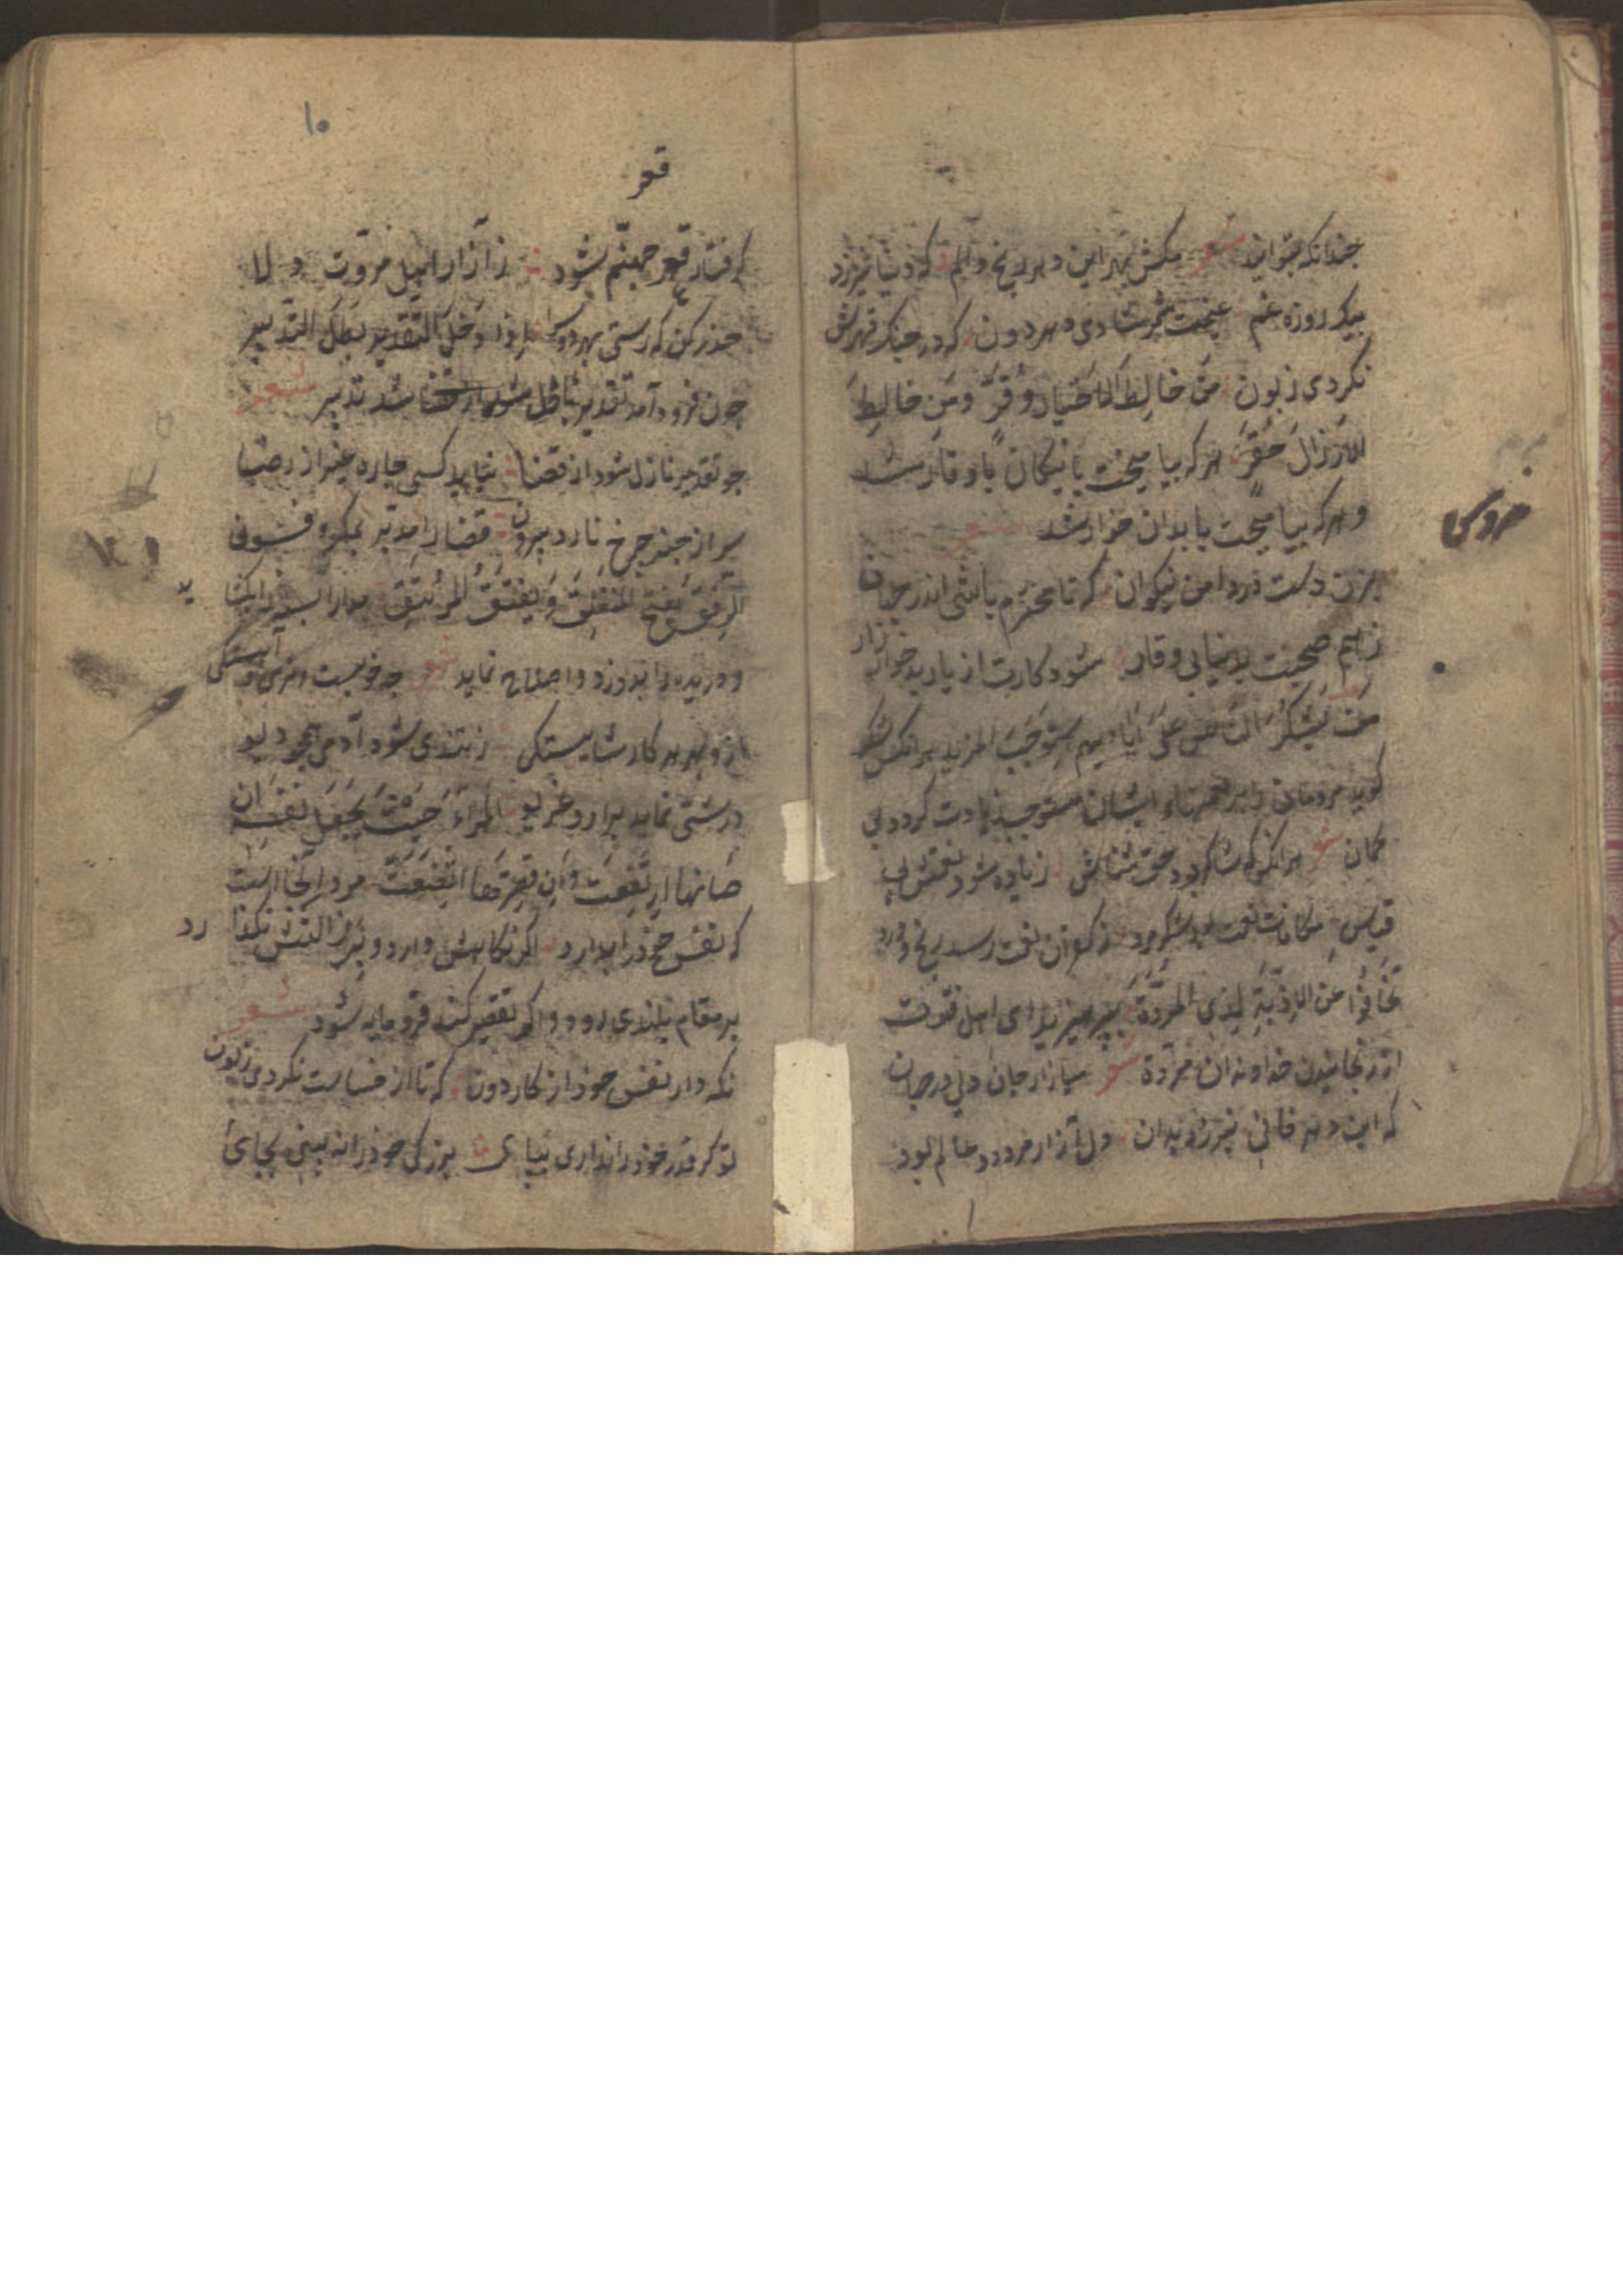 چندانکه بتوانید شعر مکش بهر این دهر رنج و الم که دنیا نیرزد
بیک روزه غم غنیمت شمر شادی دهر دون که در جنک قهرش
نکردی زبون من خالط الاخیار وُقّرَ وَمَن خالَطَ
الارزال حُقّرَ هر که بیامیخت با نیکان با وقار شد
و هر که بیامیخت با بدان خوار شد شعر
بزن دست در دامن نیکوان که تا محترم باشی اندر جهان
زهم صحبت بد نیابی وقار شود کارت از یار بد خوار زار
من یَشکُرُ النّاس عَلیَ ایادیهم استوجَبَ المزید هر انکس شکر
کوید مردمان را بر نعمتهاء ایشان مستوجب زیادت کردد بی
کمان شعر هر انکس که شاکر بود حق شناس زیاده شود نعمتش بی
قیاس مکافات نعمت بود شکر مرد ز کفران نعمت رسد رنج و درد
تخافُوا عن الاذیّة لِذِی المرُوّة بپرهیزید ای اهل فتوت
از رنجانیدن خداوندان مروّة شعر میازار جان دلی در جهان
که این دهر فانی نیرزد بدان دل آزار مردود عالم بود
قعر
کرفتار قعر جهنّم شود ز آزار اهل مروّت دلا
حذر کن که رستی بهر دو سرا اذا دَخلَ التقدیر بطَلَ التدبیر
چون فرود آمد تقدیر باطل شد تدبیر شعر
چو تقدیر نازل شود از قضا نیابد کسی چاره غیر از رضا
سر از چنبر چرخ نارد برون قضا را مدبّر بمکر و فسون
الرفقُ یفتحُ المنغلِقَ وَ یَفتقُ المرُتتِقَ مدارا بسته را بکشاید
و دریده را بدوزد و اصلاح نماید شعر چه خوبست نرمی و آهستکی
ازو بهر هر کار شایستکی ز تندی شود آدمی همچو دیو
درشتی نماید برارد غریو المرأ حَیثُ یَجعَل نفسَه ان
صَانَها ارتفعَت وَان قصّرَها اتّضَعَت مرد آنجا است
که نفس خود را بدارد اکر نکاهش دارد و بزر التنش نکذارد
بر مقام بلندی رود و اکر تقصیر کند فرومایه شود شعر
نکه دار نفس خود از کار دون که تا از خساست نکردی زبون
تو کر قدر خود را نداری بپای بزرکی خود را نه بینی بجای